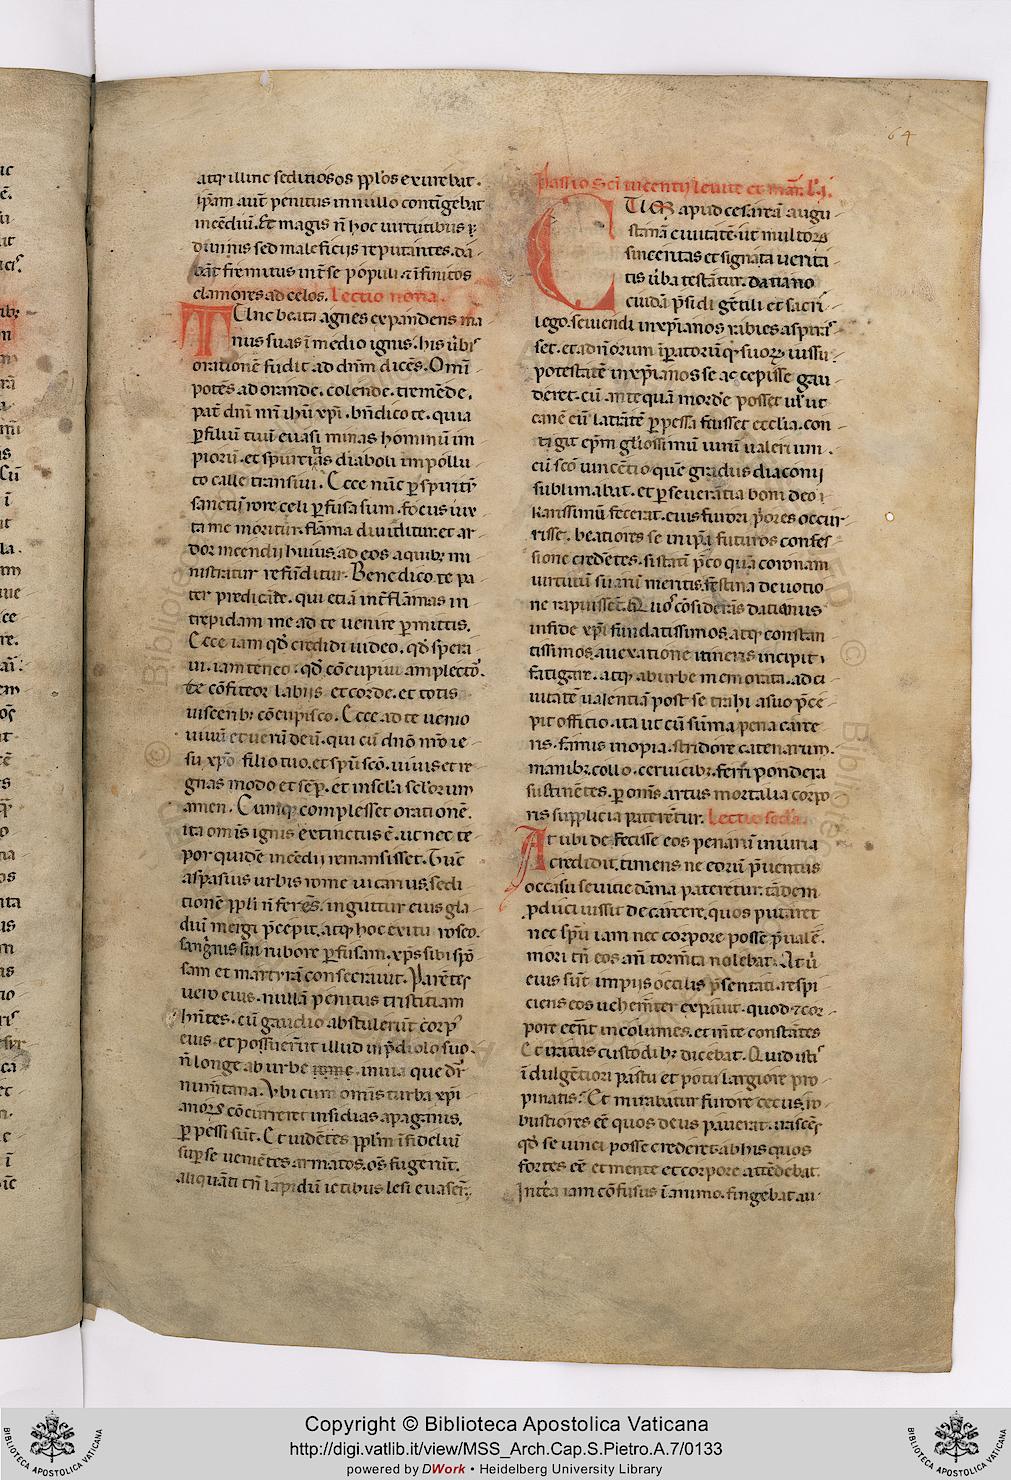 64
atq; illinc seditiosos pplos exurebat.
ipam aut̄ penitus in nullo contigebat
incēdiū. Et magis n̄ hoc uirtutibus
diuinis sed maleficijs reputantes. dā-
bāt fremitus int̄ se populi ⁊ īfinitos
clamores ad celos. Lectio nona.
Tunc beata agnes expandens ma
nus suas ī medio ignis. his ūbis
orationē fudit ad dn̄m dicēs. Omī
potēs adorande. colende. tremēde.
pat̄ dn̄i nr̄i ihū xp̄i. bn̄dico te. quia
p filiū tuū euasi minas hominū im
piorū. et spurtias diaboli impollu
to calle transiui. Ecce nūc p spiritū
sanctū rore celi pfusa sum. focus iux
ta me moritur. flāma diuiditur. et ar
dor incendij huius. ad eos a quib; mi
nistratur refūditur. Benedico te pa
ter predicāde. qui etiā int̄ flāmas in
trepidam me ad te uenire pmittis.
Ecce iam qd̄ credidi uideo. qd̄ spera
ui. iam teneo. qd̄ cōcupiui amplector.
te cōfiteor labijs et corde. et totis
uiscerib; cōcupisco. Ecce ad te uenio
uiuū et uerū deū. qui cū dn̄o nr̄o ie
su xp̄o filio tuo. et spū scō. uiuis et re
gnas modo et sēp. et in secla seclorum
amen. Cumq; complesset orationē.
ita omīs ignis extinctus ē. ut nec te
por quidē incēdii remansisset. Tūc
aspasius urbis rome uicarius. sedi
tionē ppli n̄ ferēs. inguttur eius gla
diū mergi p̄cepit. atq; hoc exitu roseo.
sanguinis sui rubore pfusam. xp̄s sibi spō
sam et martyrā consecrauit. Parētes
uero eius. nullā penitus tristitiam
hn̄tes. cū gaudio abstulerūt corp
eius. et posuerūt illud in p̄diolo suo.
n̄ longe ab urbe rome. in uia que dr̄
numt̄ana. Ubi cum omīs turba xp̄i
anorꝝ cōcurreret insidias a paganis.
ppessi sūt. Et uidētes pplm īfideliū
sup se uenētes armatos. oēs fugerūt.
aliquāti tn̄ lapidū ictibus lesi euaserūt.
Passio sci uincentij leuite et mar̄. l. j.
CUM apud cesareā augu
stanā ciuitatē. ut multorꝝ
sinceritas et signata uerita
tis ūba testātur. datiano
cuidā p̄sidi gētili et sacri
lego. seuiendi in xp̄ianos rabies aspiras
set. et ad n̄orum īperatorū q; suorꝝ iussu
potestatē in xp̄ianos se accepisse gau
deret. cū antequā mordē posset uƚ ut
canē cū latrātē ppessa fuisset ecclia. con
tigit ep̄m gliosissimū uirū ualerium.
cū scō uincētio quē gradus diaconij
sublimabat. et pseuerātia boni deo
karissimū fecerat. eius furori p̄ores occur
risse. beatiores se in ip̄a futuros confes
sione credētes. si statū p̄co quā coronam
uirtutū suarū meritis. festina deuotio
ne rapuissēt. Quos cōsiderās datianus
in fide xp̄i fundatissimos. atq; constan
tissimos. a uexatione itineris incipit
fatigare. atq; ab urbe memorata. ad ci
uitatē ualentiā post se trahi a suo p̄ce
pit officio. ita ut cū sūma pena carce
ris. famis inopia. stridore catenarum.
manib; collo. ceruicib;. ferri pondera
sustinētes. p omīs artus mortalia corpo
ris supplicia paterētur. Lectio secda.
At ubi defecisse eos penarū iniuria
credidit. timens ne eorū p̄uentus
occasu seuitie dāna pateretur. tādem
pduci iussit de carcere. quos putaret
nec spū iam nec corpore posse p̄ualē.
mori tn̄ eos añ tormt̄a nolebat. At ū
eius sūt impijs oculis p̄sentati. respi
ciens eos uehemēter expauit. quod ⁊ cor
pore eēnt incolumes. et mēte constātes
Et iratus custodib; dicebat. Quid istis
īdulgētiori pastu et potu largiore pro
pinatis? Et mirabatur furore cecus. ro
bustiores eē quos deus pauerat. irascēs
qd̄ se uinci posse crederet ab his quos
fortes eē et mente et corpore attēdebat.
Intea iam cōfusus ī animo. fingebat au
Copyright © Biblioteca Apostolica Vaticana
http://digi.vatlib.it/view/MSS_Arch.Cap.S.Pietro.A.7/0133
powered by DWork • Heidelberg University Library
BIBLIOTECA APOSTOLICA VATICANA
BIBLIOTECA APOSTOLICA VATICANA